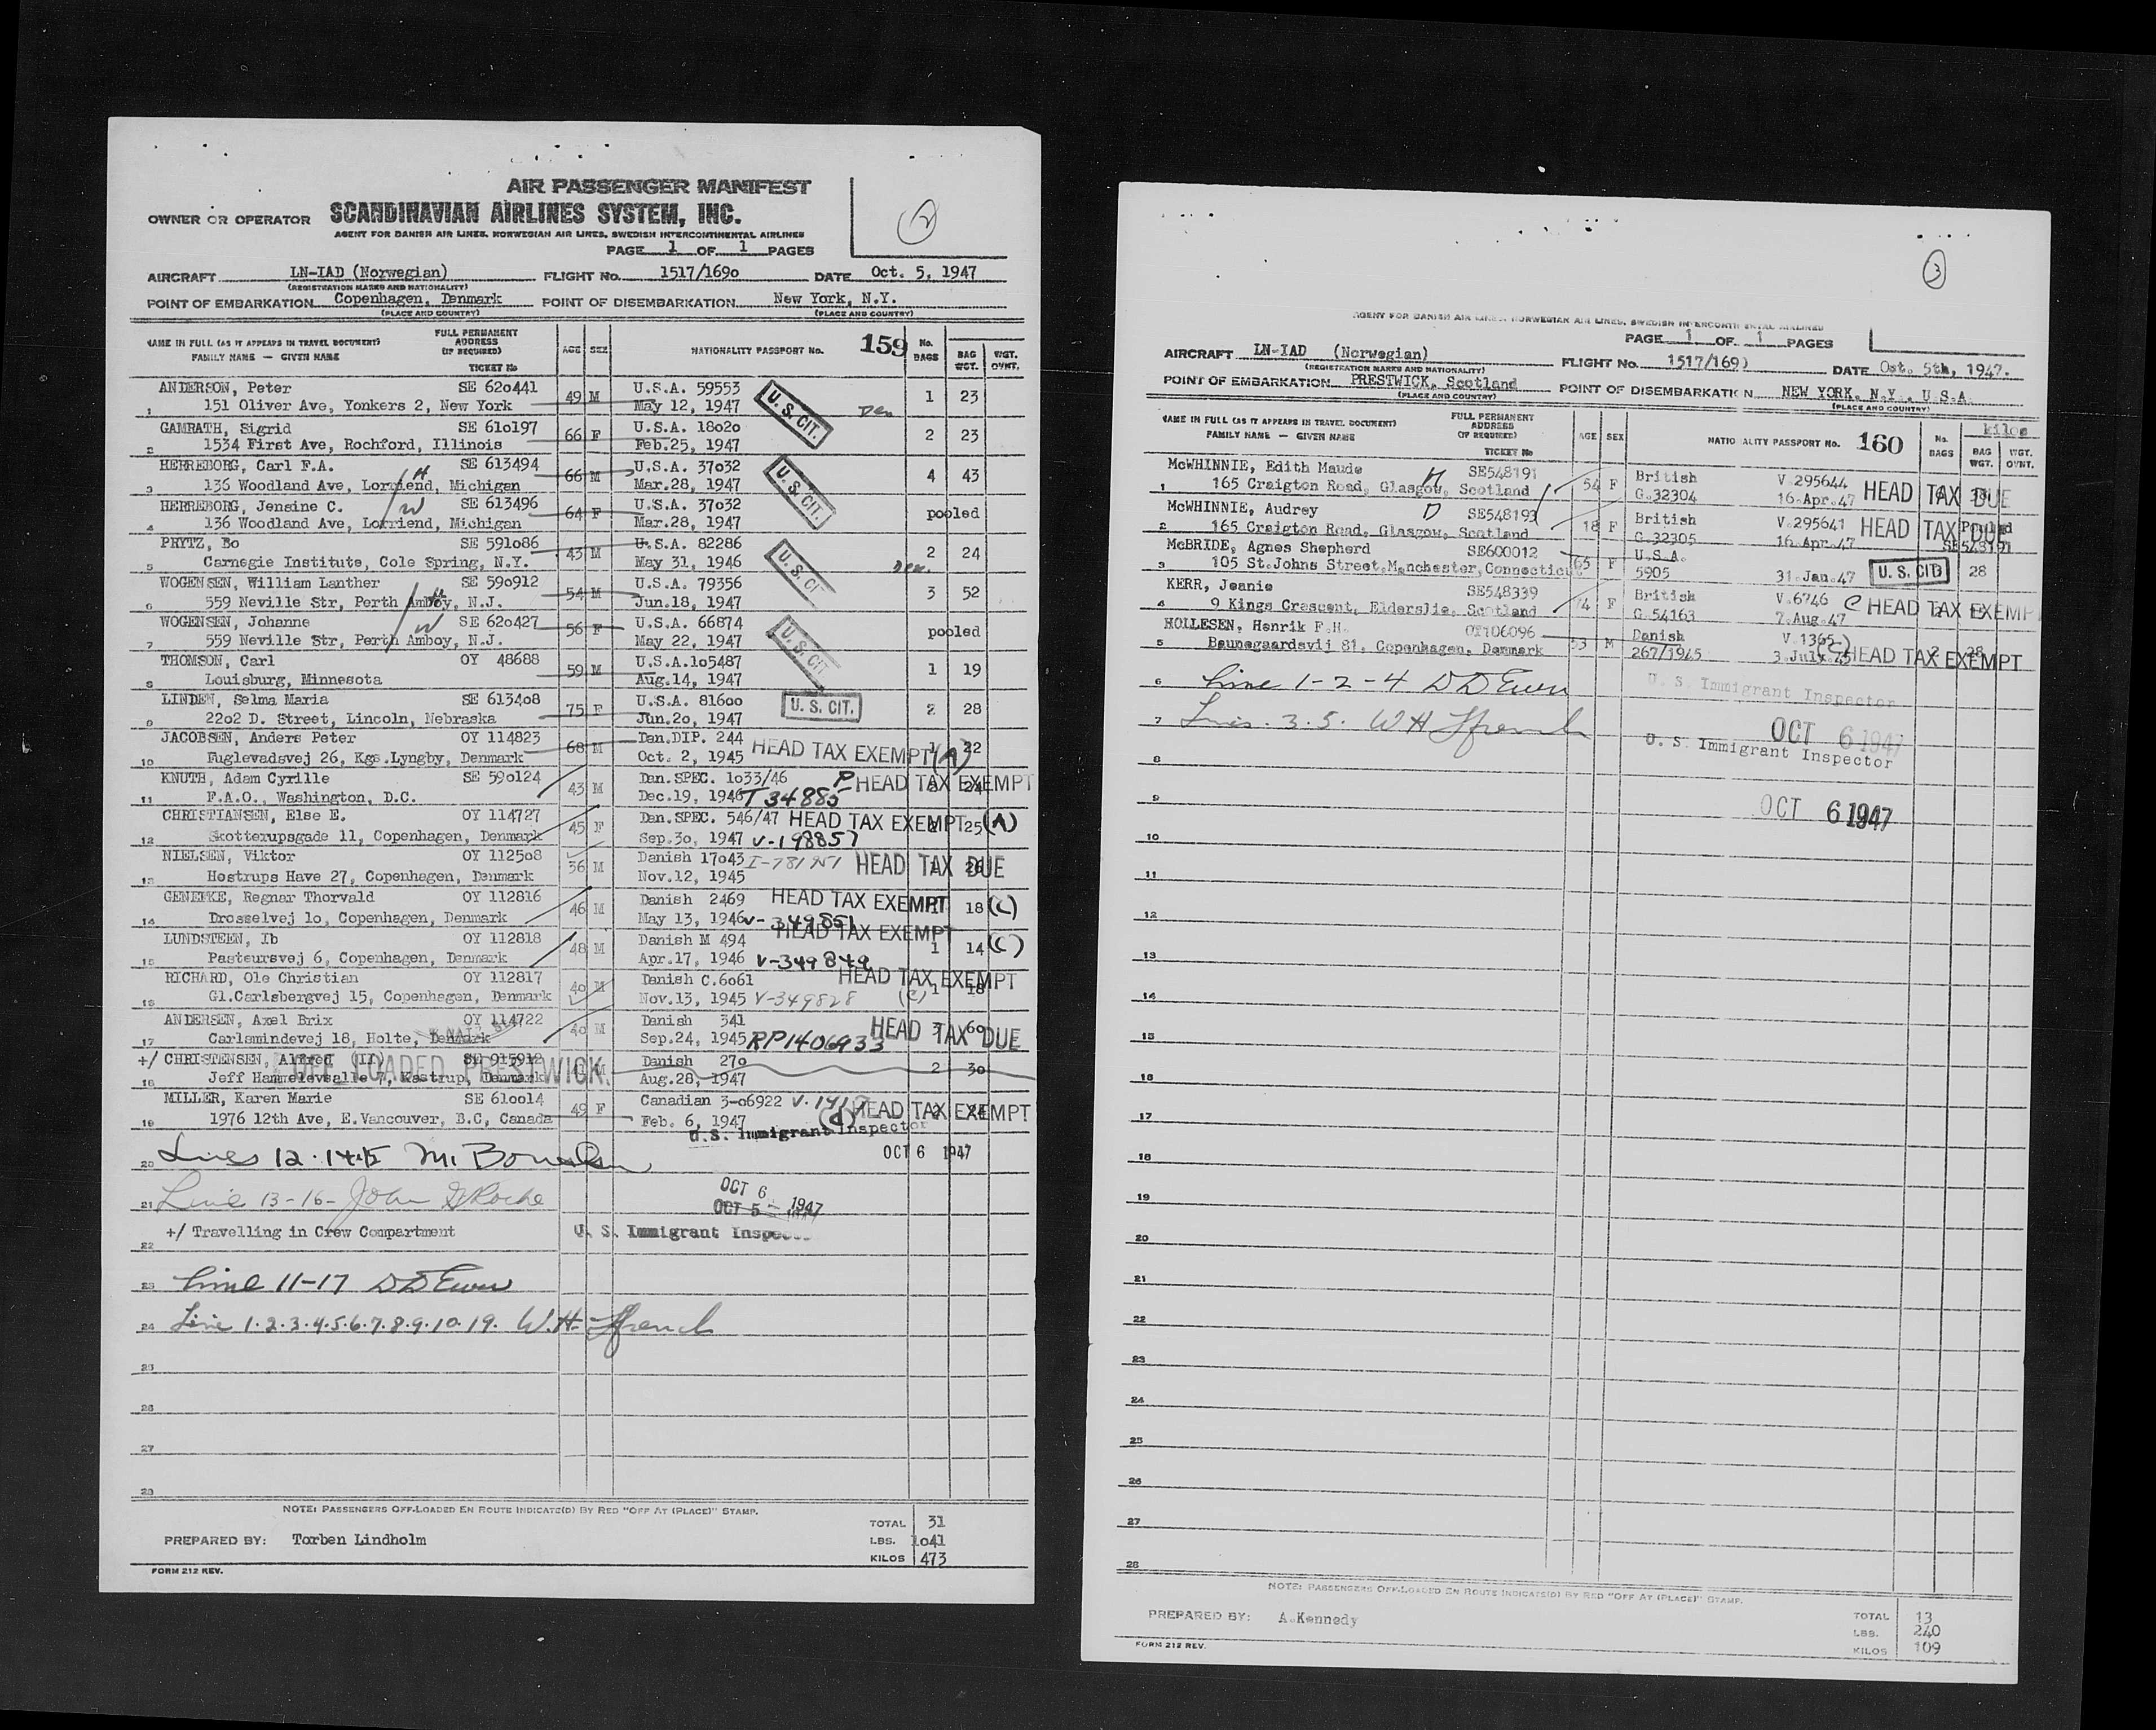 AIR PASSENGER MANIFEST
OWNER OR OPERATOR SCANDINAVIAN AIRLINES SYSTEM, INC.
AGENT FOR DANISH AIR LINES, NORWEGIAN AIR LINES, SWEDISH INTERCONTINENTAL AIRLINES
2
PAGE 1 OF 1 PAGES
AIRCRAFT LN-IAD (Norwegian) FLIGHT No. 1517/1690 DATE Oct. 5, 1947
(REGISTRATION MARKS AND NATIONALITY)
POINT OF EMBARKATION Copenhagen, Denmark POINT OF DISEMBARKATION New York, N.Y.
(PLACE AND COUNTRY) (PLACE AND COUNTRY)
NAME IN FULL (AS IT APPEARS IN TRAVEL DOCUMENT) FULL PERMANENT ADDRESS (IF REQUIRED) AGE SEX NATIONALITY PASSPORT No. 159 No. BAGS BAG WGT. WGT. OVNT.
FAMILY NAME — GIVEN NAME TICKET No
ANDERSON, Peter SE 620441 49 M U.S.A. 59553 U.S. CIT. 1 23
1 151 Oliver Ave, Yonkers 2, New York May 12, 1947 Den
GAMRATH, Sigrid SE 610197 66 F U.S.A. 18020 2 23
2 1534 First Ave, Rochford, Illinois Feb.25, 1947
HERREBORG, Carl F.A. SE 613494 66 M U.S.A. 37032 U.S. CIT. 4 43
3 136 Woodland Ave, Lorriend, Michigan H Mar.28, 1947
HERREBORG, Jensine C. SE 613496 64 F U.S.A. 37032 pooled
4 136 Woodland Ave, Lorriend, Michigan W Mar.28, 1947
PRYTZ, Bo SE 591086 43 M U.S.A. 82286 U.S. CIT. 2 24
5 Carnegie Institute, Cole Spring, N.Y. May 31, 1946 Den.
WOGENSEN, William Lanther SE 590912 54 M U.S.A. 79356 3 52
6 559 Neville Str, Perth Amboy, N.J. H Jun.18, 1947
WOGENSEN, Johanne SE 620427 56 F U.S.A. 66874 U.S. CIT. pooled
7 559 Neville Str, Perth Amboy, N.J. W May 22, 1947
THOMSON, Carl OY 48688 59 M U.S.A.105487 1 19
8 Louisburg, Minnesota Aug.14, 1947
LINDEN, Selma Maria SE 613408 75 F U.S.A. 81600 U.S. CIT. 2 28
9 2202 D. Street, Lincoln, Nebraska Jun.20, 1947
JACOBSEN, Anders Peter OY 114823 68 M Dan.DIP. 244 HEAD TAX EXEMPT (A) 1 22
10 Fuglevadsvej 26, Kgs.Lyngby, Denmark Oct. 2, 1945
KNUTH, Adam Cyrille SE 590124 43 M Dan.SPEC. 1033/46 P- HEAD TAX EXEMPT
11 F.A.O., Washington, D.C. Dec.19, 1946 T 34885
CHRISTIANSEN, Else E. OY 114727 45 F Dan.SPEC. 546/47 HEAD TAX EXEMPT 25 (A)
12 Skotterupsgade 11, Copenhagen, Denmark Sep.30, 1947 V-198857
NIELSEN, Viktor OY 112508 36 M Danish 17043 HEAD TAX DUE
13 Hostrups Have 27, Copenhagen, Denmark Nov.12, 1945
GENEFKE, Regnar Thorvald OY 112816 46 M Danish 2469 HEAD TAX EXEMPT 18 (C)
14 Drosselvej 10, Copenhagen, Denmark May 13, 1946 V-349851
LUNDSTEEN, Ib OY 112818 48 M Danish M 494 HEAD TAX EXEMPT 1 14 (C)
15 Pasteursvej 6, Copenhagen, Denmark Apr.17, 1946 V-349849
RICHARD, Ole Christian OY 112817 40 M Danish C.6061 HEAD TAX EXEMPT 1 18
16 Gl.Carlsbergvej 15, Copenhagen, Denmark Nov.13, 1945 V-349828 (C)
ANDERSEN, Axel Brix OY 114722 40 M Danish 341 HEAD TAX DUE 3 60
17 Carlsmindevej 18, Holte, Denmark Sep.24, 1945 RP1406933
+/ CHRISTENSEN, Alfred (II) SE 915912 M Danish 270 2 30
OFF LOADED PRESTWICK.
18 Jeff Hammelevsalle 7, Kastrup, Denmark Aug.28, 1947
MILLER, Karen Marie SE 610014 49 F Canadian 3-06922 HEAD TAX EXEMPT
19 1976 12th Ave, E.Vancouver, B.C, Canada Feb. 6, 1947 (d)
U.S. Immigrant Inspector
20 Lines 12.14.15 OCT 6 1947
21 Line 13-16- John G Roche OCT 6 1947
OCT 5 - 1947
22 +/ Travelling in Crew Compartment U. S. Immigrant Inspec
23 Line 11-17 D D Ewen
24 Line 1.2.3.4.5.6.7.8.9.10.19. W.H. Ffrench
25
26
27
28
NOTE: PASSENGERS OFF-LOADED EN ROUTE INDICATE(D) BY RED "OFF AT (PLACE)" STAMP.
TOTAL 31
PREPARED BY: Torben Lindholm LBS. 1041
KILOS 473
FORM 212 REV.
3
AGENT FOR DANISH AIR LINES, NORWEGIAN AIR LINES, SWEDISH INTERCONTINENTAL AIRLINES
PAGE 1 OF 1 PAGES
AIRCRAFT LN-IAD (Norwegian) FLIGHT No. 1517/169) DATE Oct. 5th, 1947.
(REGISTRATION MARKS AND NATIONALITY)
POINT OF EMBARKATION PRESTWICK, Scotland POINT OF DISEMBARKATION NEW YORK, N.Y., U.S.A.
(PLACE AND COUNTRY) (PLACE AND COUNTRY)
NAME IN FULL (AS IT APPEARS IN TRAVEL DOCUMENT) FULL PERMANENT ADDRESS (IF REQUIRED) AGE SEX NATIONALITY PASSPORT No. 160 No. BAGS kilos BAG WGT. WGT. OVNT.
FAMILY NAME — GIVEN NAME TICKET No
McWHINNIE, Edith Maude SE548191 54 F British V.295644 HEAD TAX DUE
1 165 Craigton Road, Glasgow, Scotland G.32304 16.Apr.47
McWHINNIE, Audrey D SE548193 18 F British V.295641 HEAD TAX DUE Pooled
2 165 Craigton Road, Glasgow, Scotland G.32305 16.Apr.47 SE548191
McBRIDE, Agnes Shepherd SE600012 65 F U.S.A.
3 105 St.Johns Street,Manchester,Connecticut 5905 31.Jan.47 U.S. CIT. 28
KERR, Jeanie SE548339 74 F British V.6746 C HEAD TAX EXEMP
4 9 Kings Crescent, Elderslie, Scotland G.54163 7.Aug.47
HOLLESEN, Henrik F.H. OY106096 53 M Danish V.1365 (C) HEAD TAX EXEMPT 2 28
5 Baunegaardsvij 81, Copenhagen, Denmark 267/1945 3.July.45
6 Line 1-2-4 D D Ewen U. S. Immigrant Inspector
7 Lines. 3.5. W H Ffrench OCT 6 1947
8 U. S. Immigrant Inspector
9 OCT 6 1947
10
11
12
13
14
15
16
17
18
19
20
21
22
23
24
25
26
27
28
NOTE: PASSENGERS OFF-LOADED EN ROUTE INDICATE(D) BY RED "OFF AT (PLACE)" STAMP.
PREPARED BY: A.Kennedy TOTAL 13
LBS. 240
FORM 212 REV. KILOS 109